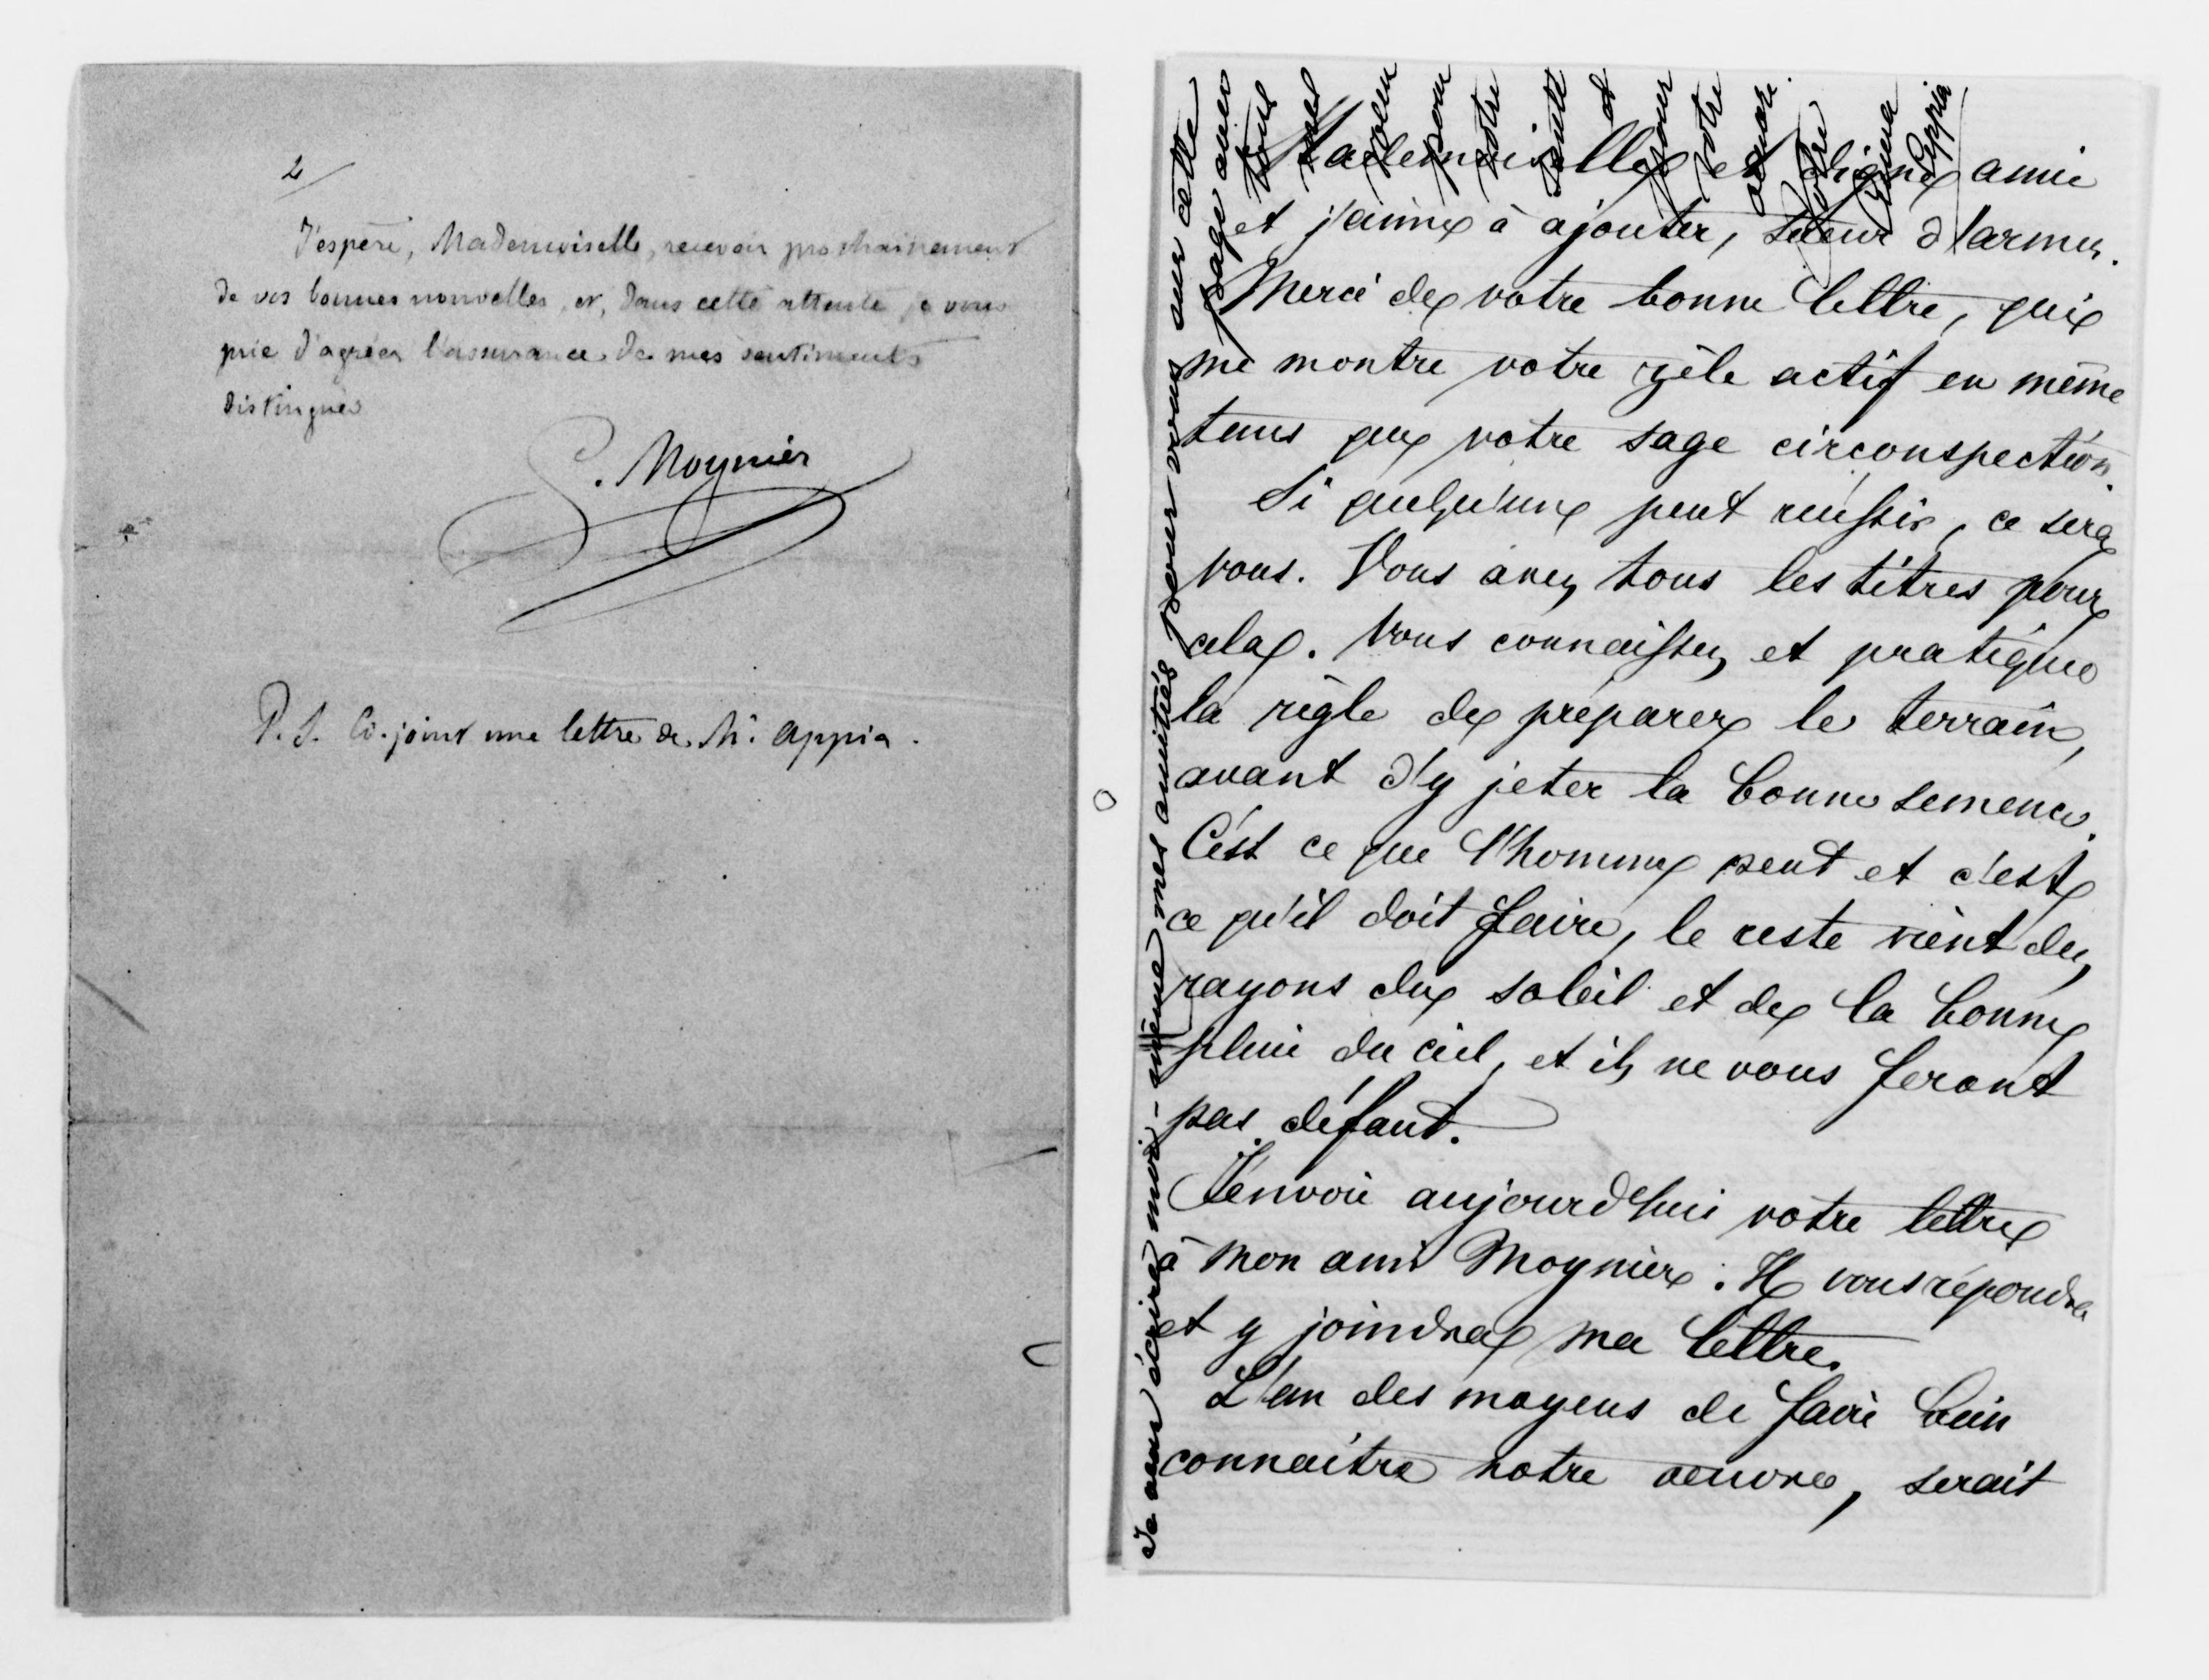 2
J'espère, Mademoiselle, recevoir prochainement
de vos bonnes nouvelles, et, dans cette attente je vous
prie d'agréer l'assurance de mes sentiments
distingués
G. Moynier
P. S. Ci-joint une lettre de Mr. Appia.
Mademoiselle et digne amie
et j'aime à ajouter, soeur d'armes.
Merci de votre bonne lettre, qui
me montre votre zèle actif en même
tems que votre sage circonspection.
Si quelqu'un peut réussir, ce sera
vous. Vous avez tous les titres pour
cela. Vous connaissez et pratiquez
la règle de préparer le terrain,
avant d'y jeter la bonne semence.
C'est ce que l'homme peut et c'est
ce qu'il doit faire, le reste vient des
rayons du soleil et de la bonne
pluie du ciel, et ils ne vous feront
pas défaut.
J'envoie aujourd'hui votre lettre
à mon ami Moynier. Il vous répondra
et y joindra ma lettre.
L'un des moyens de faire bien
connaitre notre oeuvre, serait
Je veux écrire moi-même mes amitiés pour vous sur cette
page avec
tous
mes
voeux
pour
votre
santé
et
pour
votre
oeuvre.
Votre
Appia